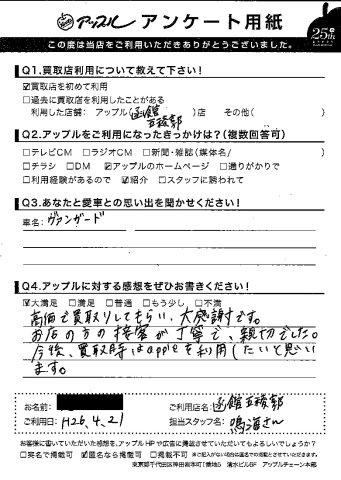 アップル アンケート用紙
25th
この度は当店をご利用いただきありがとうございました。
Q1.買取店利用について教えて下さい!
☑買取店を初めて利用
□過去に買取店を利用したことがある
利用した店舗: アップル(函館五稜郭)店 その他( )
Q2.アップルをご利用になったきっかけは?(複数回答可)
□テレビCM □ラジオCM □新聞・雑誌(媒体名/ )
□チラシ □DM ☑アップルのホームページ □通りがかりで
□利用経験があるので ☑紹介 □スタッフに誘われて
Q3.あなたと愛車との思い出を聞かせください!
車名: ヴァンガード
Q4.アップルに対する感想をぜひお書きください!
☑大満足 □満足 □普通 □もう少し □不満
高価で買取りしてもらい、大感謝です。
お店の方の接客が丁寧で、親切でした。
今後、買取時はappleを利用したいと思い
ます。
お名前: ご利用店名: 函館五稜郭
ご利用日: H26.4.21 担当スタッフ名: 鳴海さん
お客様に書いていただいた感想を、アップルHPや広告に掲載させていただいてもよろしいでしょうか?
□実名で掲載可 ☑匿名なら掲載可 □掲載不可 ※ご記入がない場合は匿名での掲載とさせていただきます。
東京都千代田区神田岩本町1番地5 清水ビル8F アップルチェーン本部